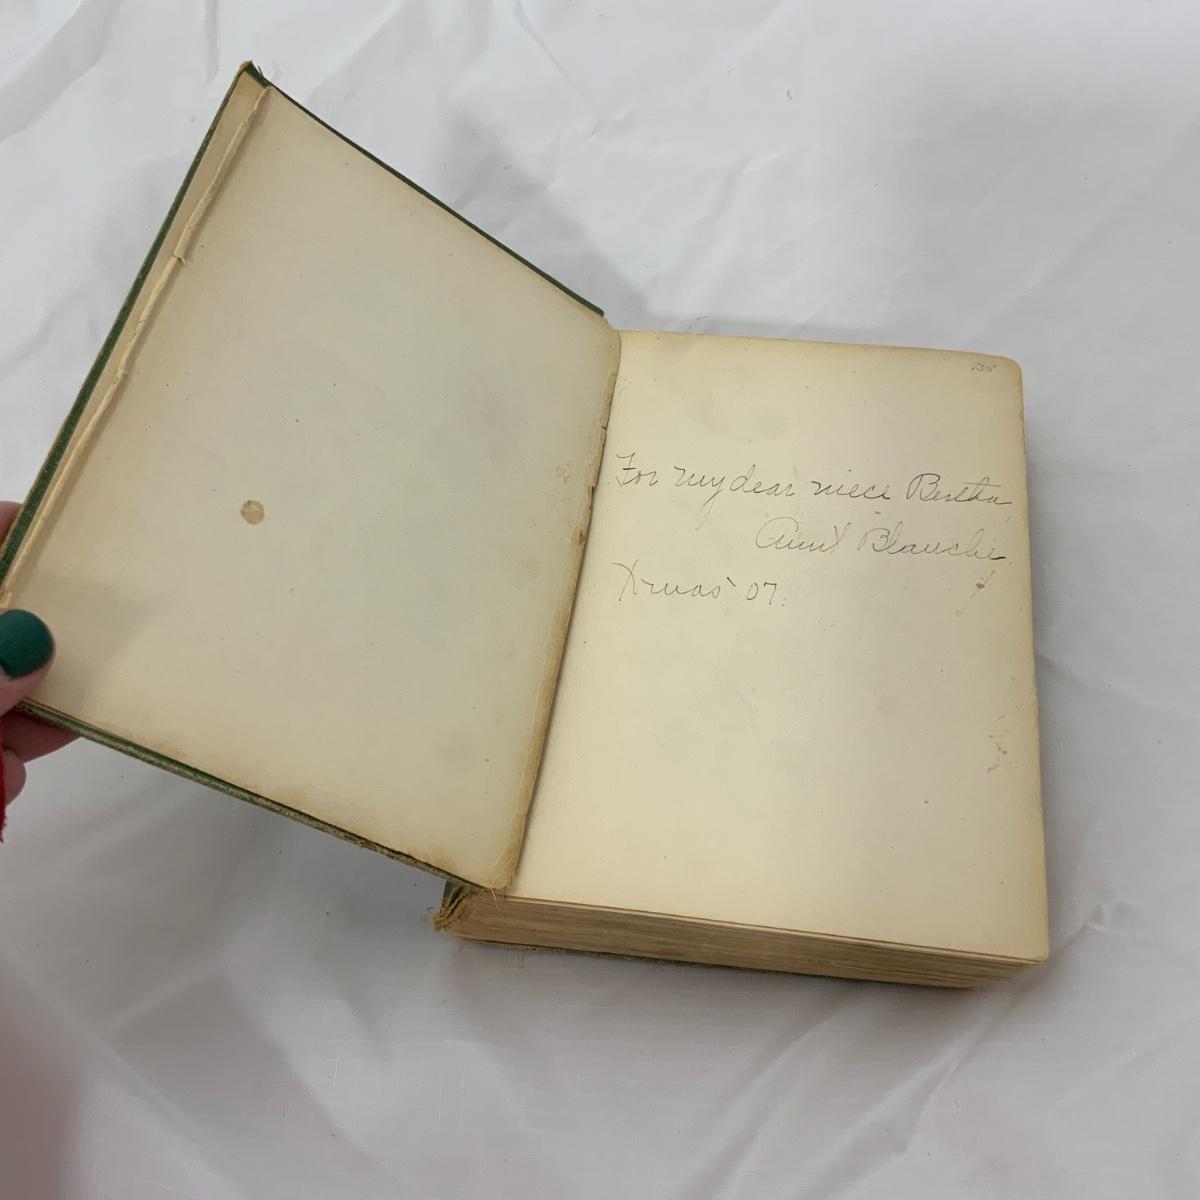 .35
For my dear niece Bertha
Aunt Blanche
Xmas '07.